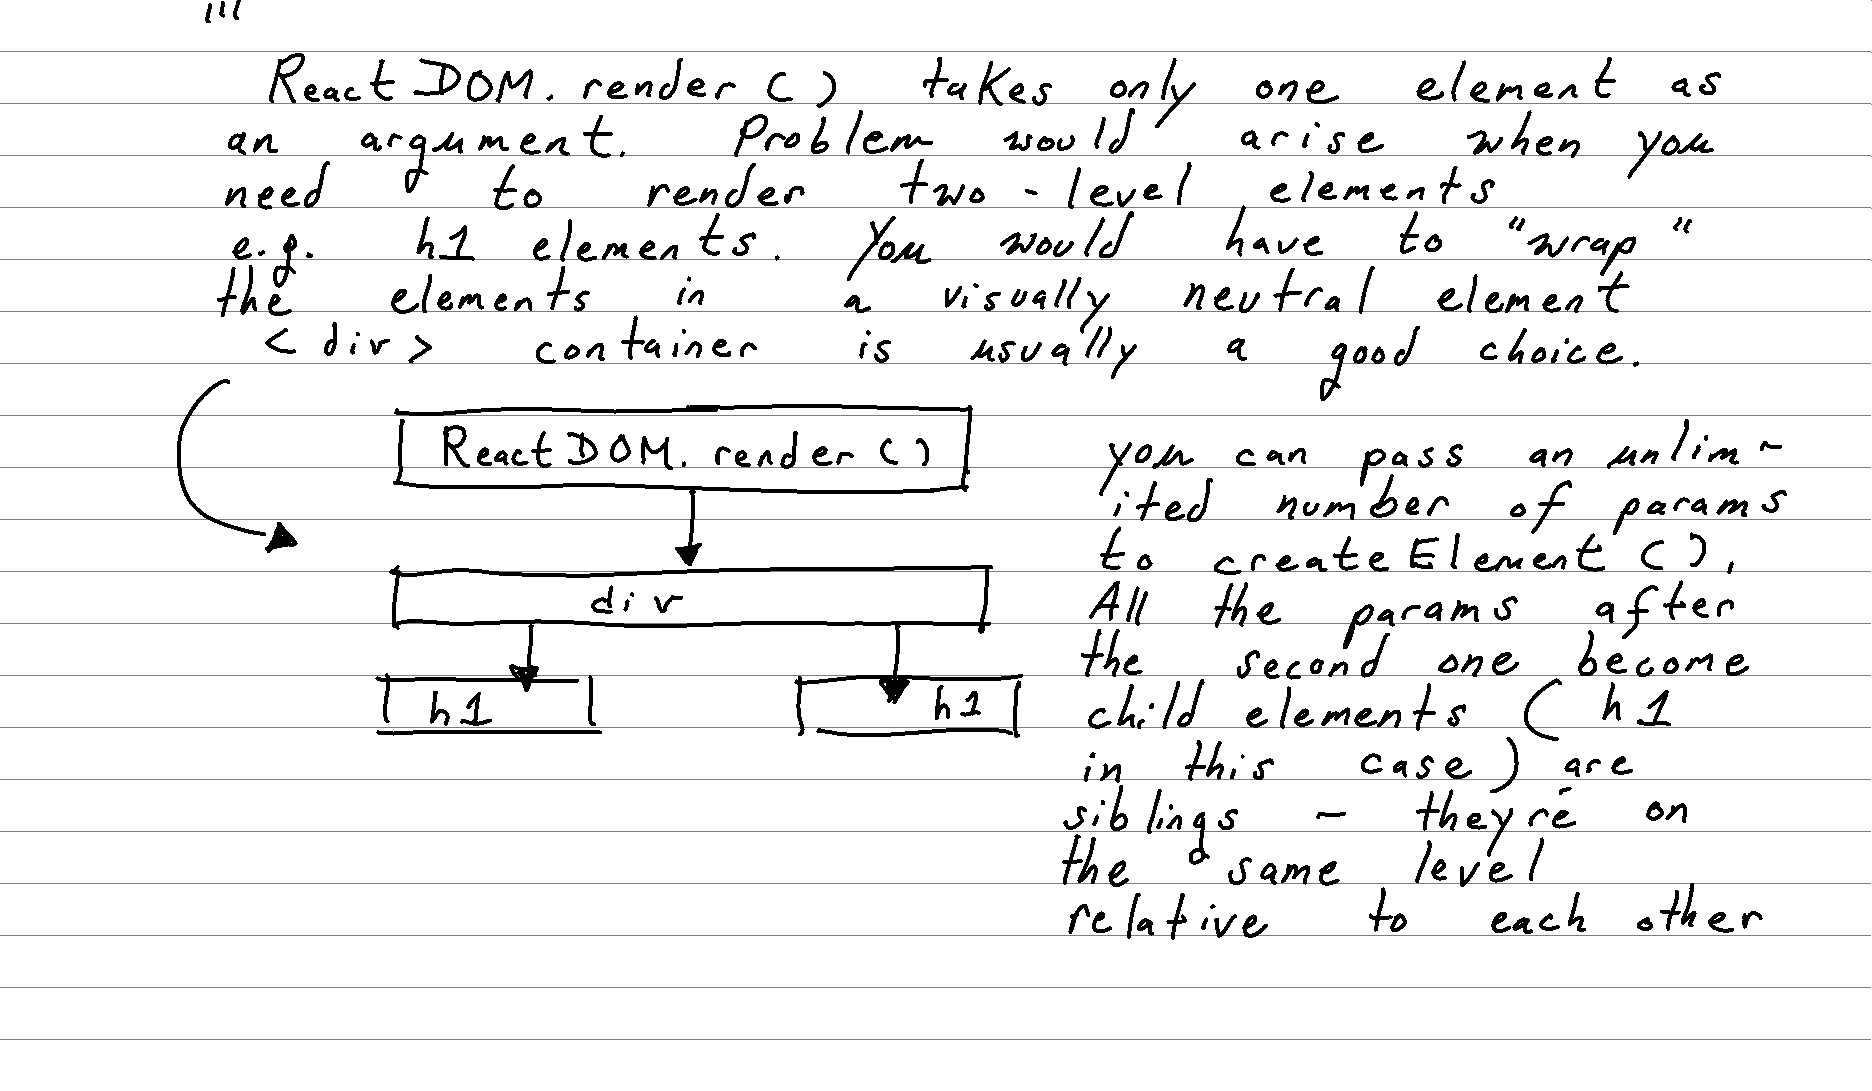 ReactDOM.render() takes only one element as
an argument. Problem would arise when you
need to render two-level elements
e.g. h1 elements. You would have to "wrap"
the elements in a visually neutral element
<div> container is usually a good choice.
ReactDOM.render()
div
h1
h1
you can pass an unlim-
ited number of params
to createElement(),
All the params after
the second one become
child elements (h1
in this case) are
siblings - they're on
the same level
relative to each other